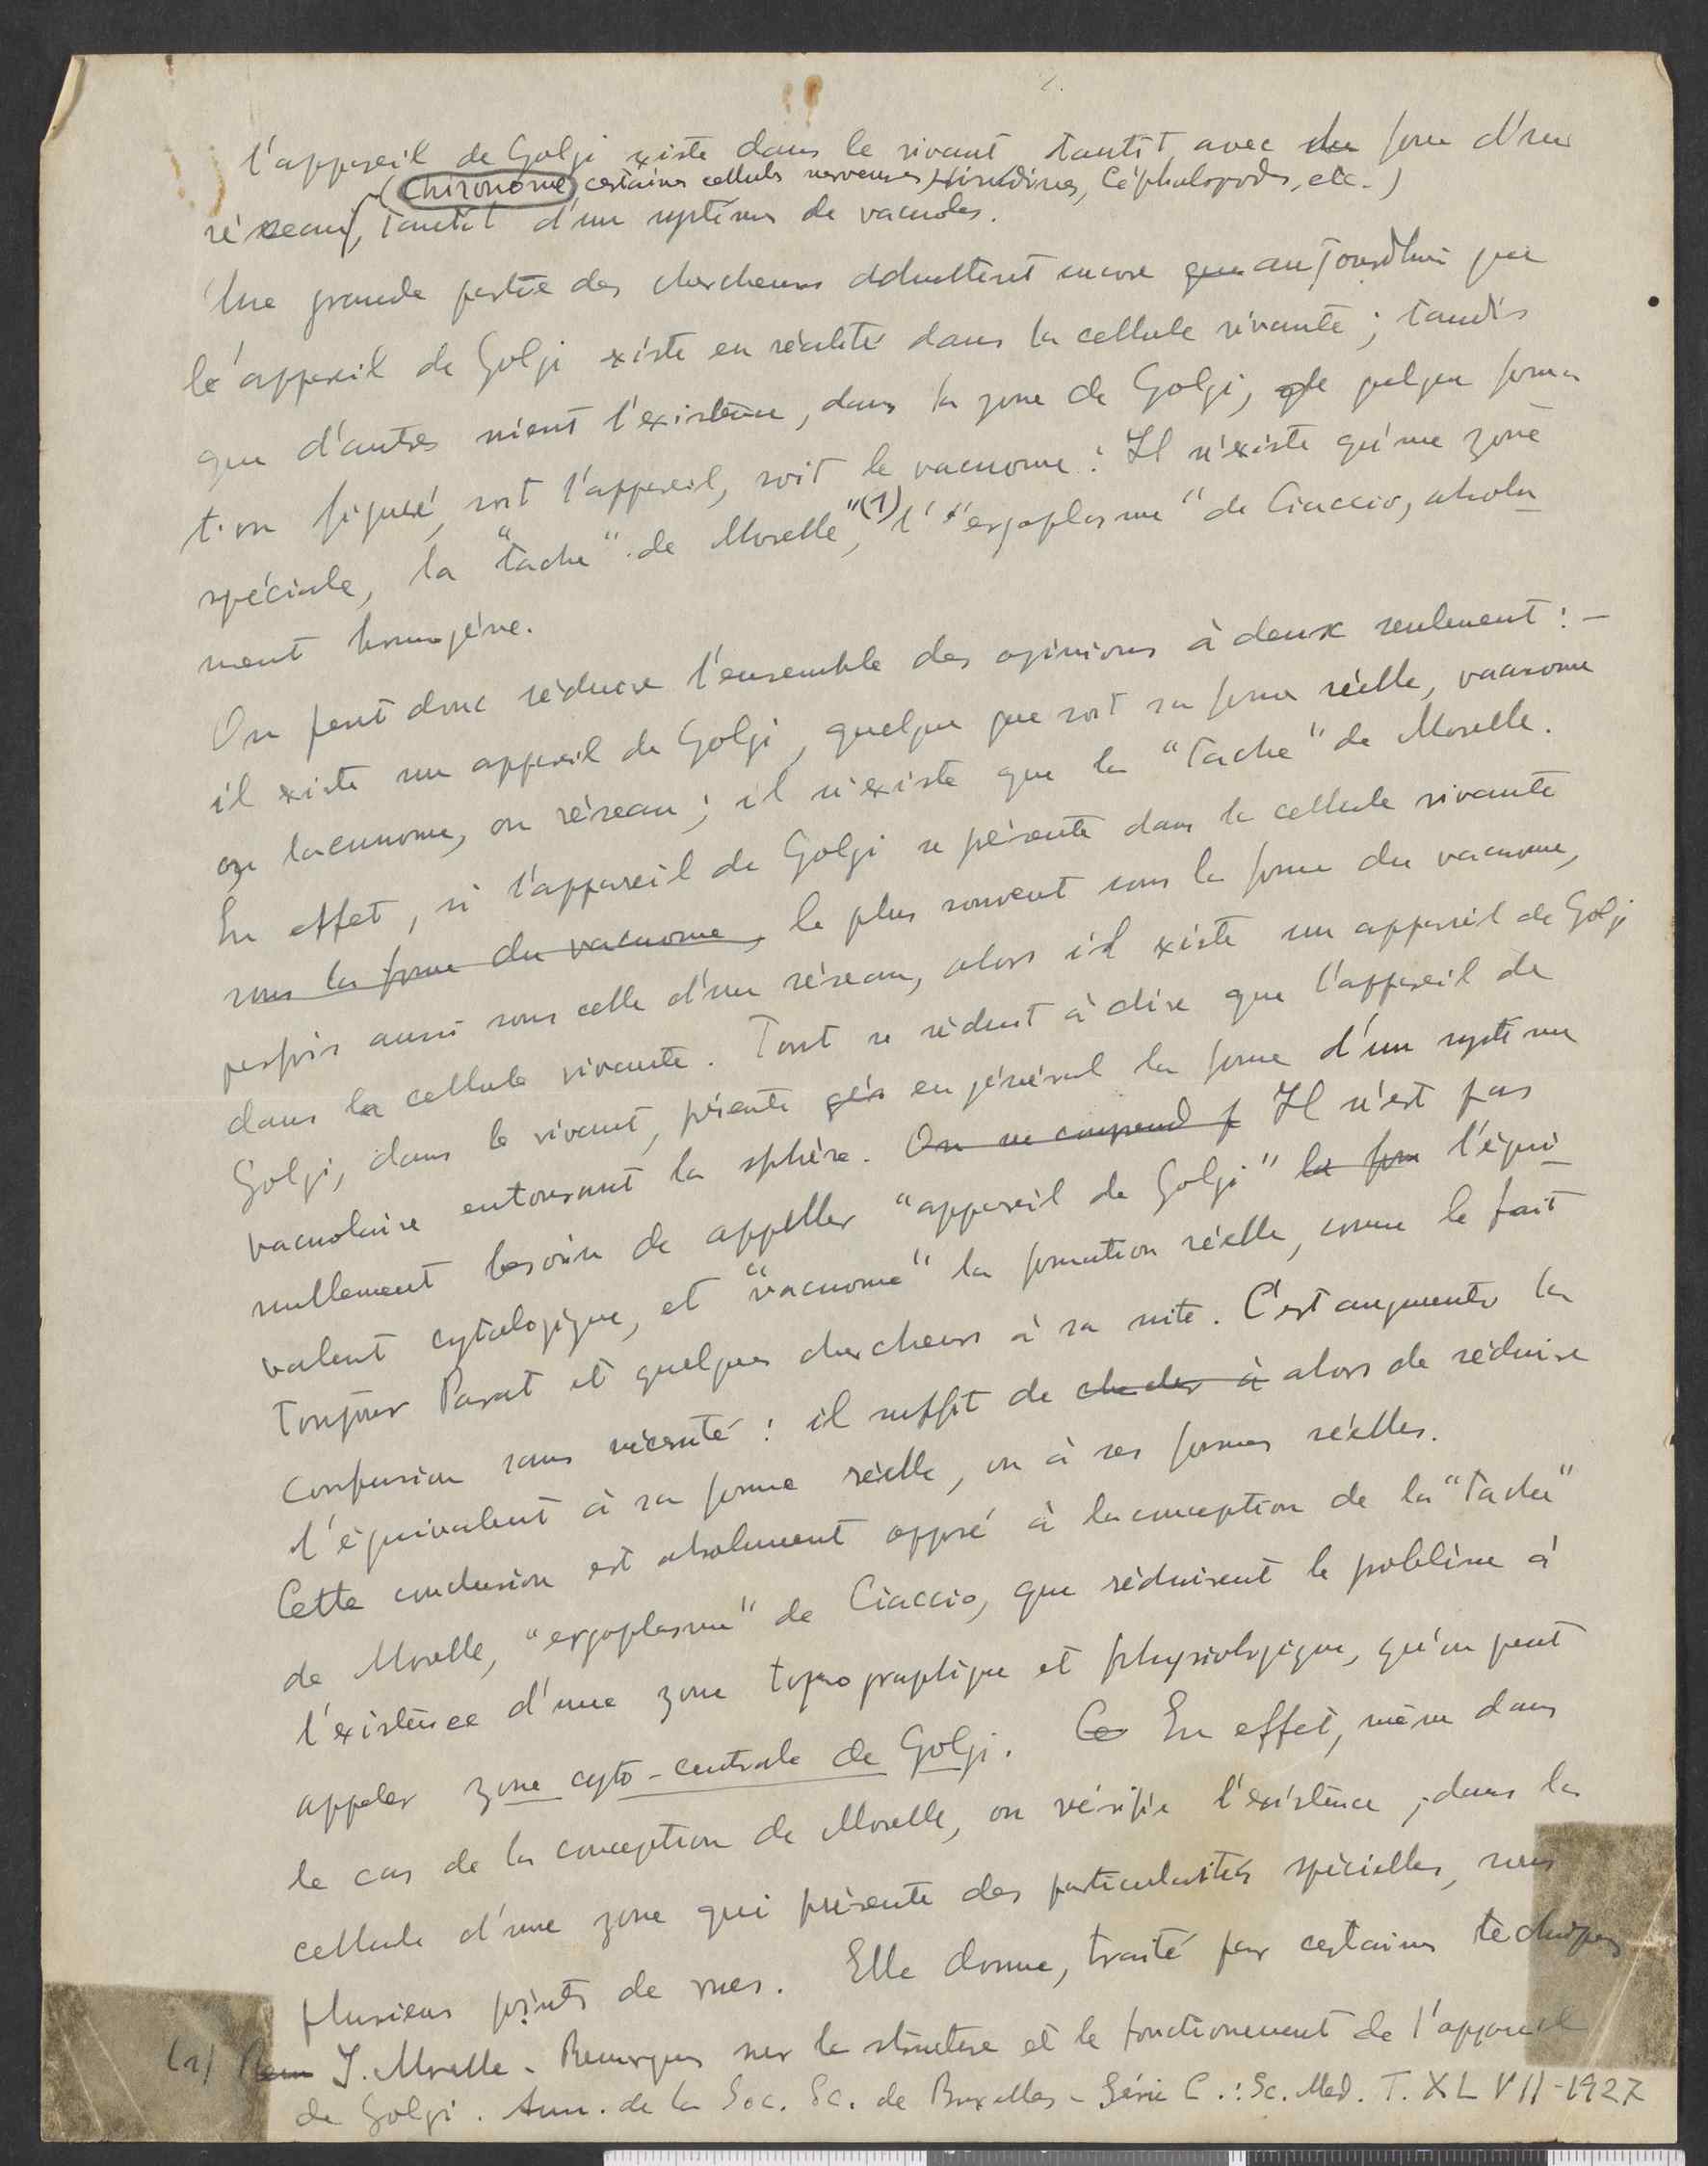 l'appareil de Golgi existe dans le vivant tantôt avec du forme d'un
(Chironome, certaines cellules nerveuses, Hirudinés, Céphalopodes, etc.)
réseau, tantôt d'un système de vacuoles.
Une grande partie des chercheurs admettent encore que aujourd'hui que
le appareil de Golgi existe en réalité dans la cellule vivante; tandis
que d'autres nient l'existence, dans la zone de Golgi, de quelque forma
tion figuré, soit l'appareil, soit le vacuome: Il n'existe qu'une zone
spéciale, la "tache" de Morelle",(1) l'"ergoplasme" de Ciaccio, absolu-
ment homogène.
On peut donc réduire l'ensemble des opinions à deux seulement: -
il existe un appareil de Golgi, quelque que soit sa forme réelle, vacuome
ou lacunome, ou réseau; il n'existe que la "Tache" de Morelle.
En effet, si l'appareil de Golgi se présente dans la cellule vivante
sous la forme du vacuome, le plus souvent sous la forme du vacuome,
parfois aussi sous celle d'un réseau, alors il existe un appareil de Golgi
dans la cellule vivante. Tout se réduit à dire que l'appareil de
Golgi, dans le vivant, présente gén en général la forme d'un système
vacuolaire entourant la sphère. On ne comprend p Il n'est pas
nullement besoin de appeller "appareil de Golgi" la form l'équi-
valent cytologique, et "vacuome" la formation réelle, comme le fait
toujour Parat et quelques chercheurs à sa suite. C'est augmenter la
confusion sans nécessité: il suffit de alors de réduire
l'équivalent à sa forme réelle, ou à ses formes réelles.
Cette conclusion est absolument opposé à la conception de la "Tache"
de Morelle, "ergoplasme" de Ciaccio, que réduisent le problème à
l'existence d'une zone topographique et physiologique, qu'on peut
appeler zone cyto-centrale de Golgi. Ce En effet, même dans
le cas de la conception de Morelle, on vérifie l'existence, dans la
cellule d'une zone qui présente des particularités spécielles, sous
plusieus points de vues. Elle donne, traité par certaines techniques
(1) Rem J. Morelle - Remarques sur la structure et le fonctionement de l'appareil
de Golgi. Ann. de la Soc. Sc. de Bruxelles - Série C.: Sc. Med. T. XLVII - 1927